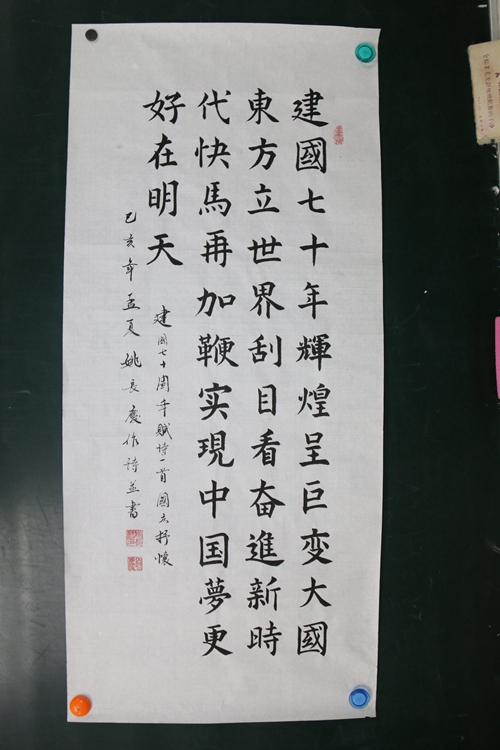 建國七十年輝煌呈巨变大國
東方立世界刮目看奋進新時
代快馬再加鞭实現中国夢更
好在明天
建國七十周年赋诗一首國庆抒懷
己亥年孟夏姚長慶作诗並書